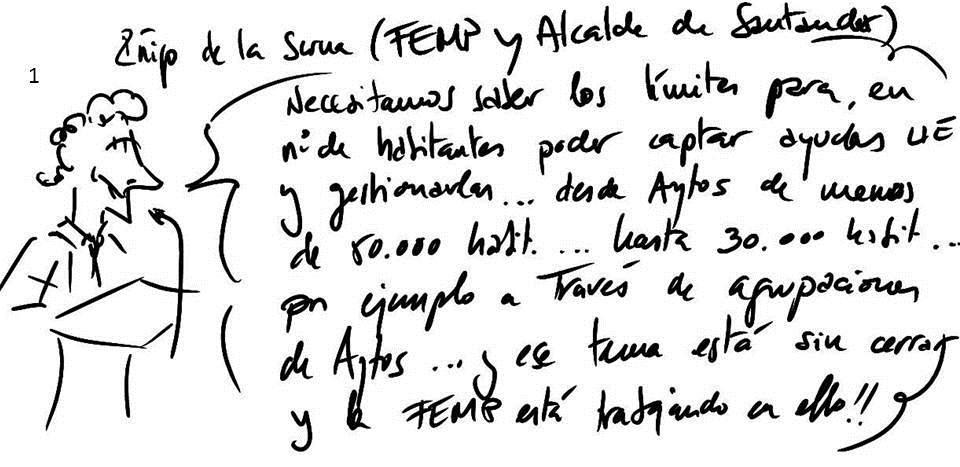 Iñigo de la Serna (FEMP y Alcalde de Santander)
1
Necesitamos saber los límites para, en
nº de habitantes poder captar ayudas UE
y gestionarlas... desde Aytos de menos
de 80.000 habit. ... hasta 30.000 habit...
por ejemplo a través de agrupaciones
de Aytos ... y ese tema está sin cerrar
y la FEMP está trabajando en ello!!